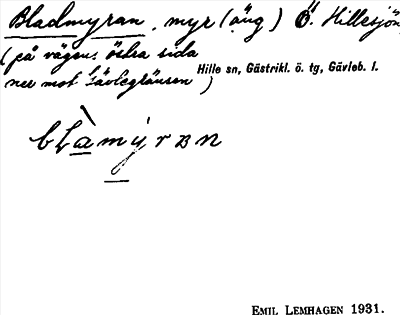 Bladmyran, myr (äng) Ö. Hillesjön
(på vägens östra sida
ner mot Gävlegränsen)
Hille sn, Gästrikl. ö. tg, Gävleb. l.
blàmyran
EMIL LEMHAGEN 1931.